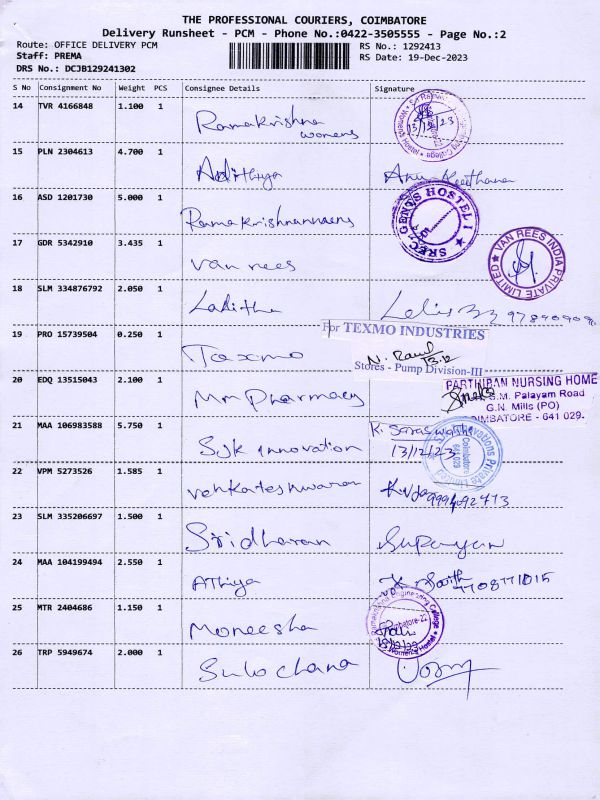 THE PROFESSIONAL COURIERS, COIMBATORE
Delivery Runsheet - PCM - Phone No.:0422-3505555 - Page No.:2
Route: OFFICE DELIVERY PCM RS No.: 1292413
Staff: PREMA RS Date: 19-Dec-2023
DRS No.: DCJB129241302
S No Consignment No Weight PCS Consignee Details Signature
14 TVR 4166848 1.100 1 Ramakrishna
womens 13/12/23
15 PLN 2304613 4.700 1 Adithya Anu
16 ASD 1201730 5.000 1 SREC GENTS HOSTEL I
17 GDR 5342910 3.435 1 van rees VAN REES INDIA PRIVATE LIMITED
18 SLM 334876792 2.050 1 Lalitha
For TEXMO INDUSTRIES
19 PRO 15739504 0.250 1 Taxmo N. 13.12
Stores - Pump Division-III
20 EDQ 13515043 2.100 1 Mn Pharmacy PARTHIBAN NURSING HOME
S.M. Palayam Road
G.N. Mills (PO)
COIMBATORE - 641 029.
21 MAA 106983588 5.750 1 SJK innovation K. Saraswathi
13/12/23
22 VPM 5273526 1.585 1 venkateshwaran 9994092473
23 SLM 335206697 1.500 1 Sridharan
24 MAA 104199494 2.550 1 Athiya 7708771015
25 MTR 2404686 1.150 1 Moneesha
26 TRP 5949674 2.000 1 Sulochana